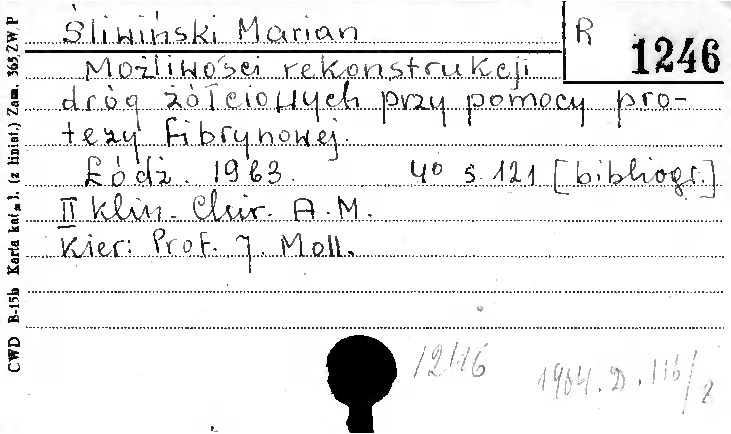 Śliwiński Marian
R 1246
Możliwości rekonstrukcji
dróg żółciowych przy pomocy pro-
tezy fibrynowej.
Łódź. 1963. 4° s. 121 [bibliogr.]
II Klin. Chir. A. M.
Kier: Prof. J. Moll.
1246
1964. D. 116/2
CWD B-15b Karta kat. l. (z liniat.) Zam. 365 ZW/P